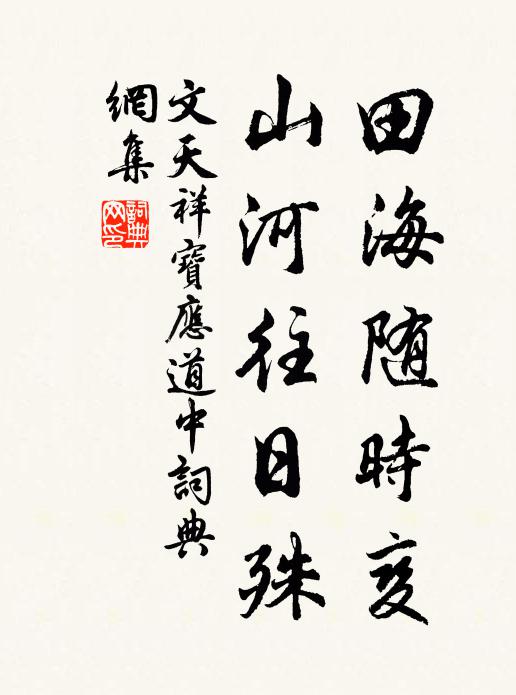 田海随時変
山河往日殊
文天祥寶應道中詞典
網集
詞典網印